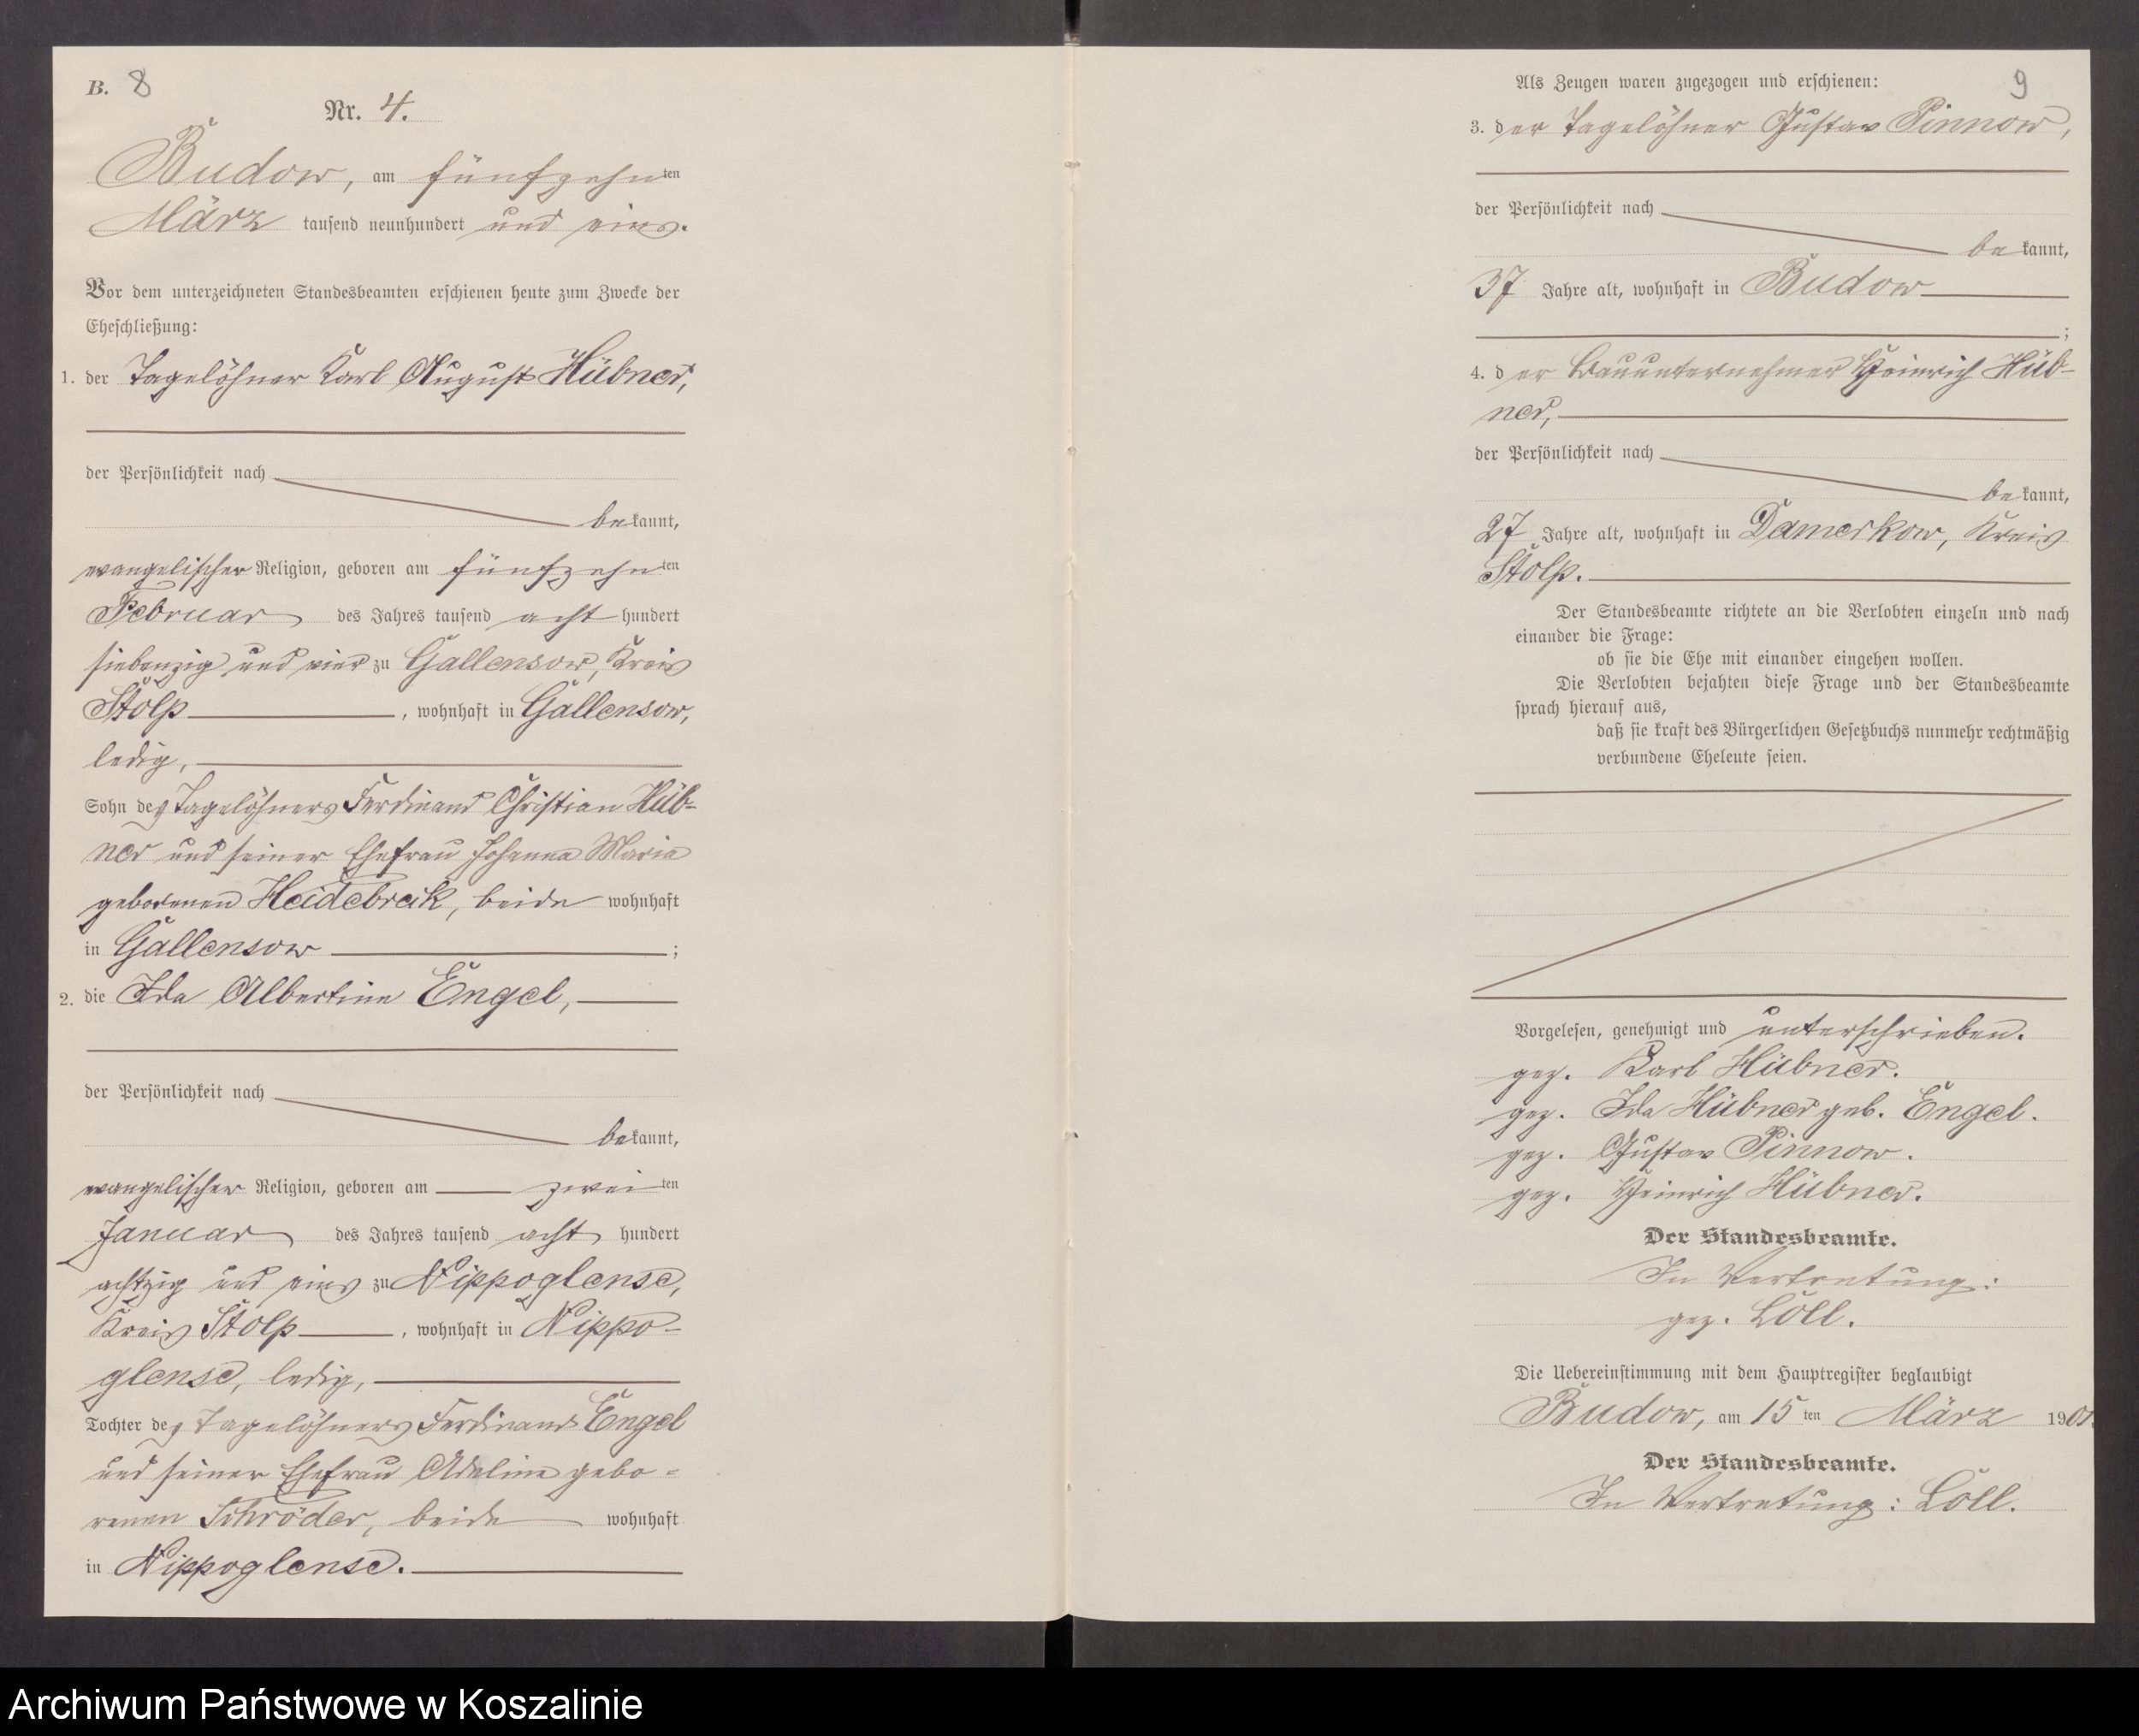 B. 8
Nr. 4.
Budow, am fünfzehnten
März tausend neunhundert und eins.
Vor dem unterzeichneten Standesbeamten erschienen heute zum Zwecke der
Eheschließung:
1. der Tagelöhner Karl August Hübner,
der Persönlichkeit nach
bekannt,
evangelischer Religion, geboren am fünfzehnten
Februar des Jahres tausend acht hundert
siebenzig und vier zu Gallensow, Kreis
Stolp, wohnhaft in Gallensow,
ledig,
Sohn des Tagelöhners Ferdinand Christian Hüb-
ner und seiner Ehefrau Johanna Maria
geborenen Heidebreik, beide wohnhaft
in Gallensow ;
2. die Ida Albertine Engel,
der Persönlichkeit nach
bekannt,
evangelischer Religion, geboren am zweiten
Januar des Jahres tausend acht hundert
achtzig und eins zu Nippoglense,
Kreis Stolp, wohnhaft in Nippo-
glense, ledig,
Tochter des Tagelöhners Ferdinand Engel
und seiner Ehefrau Adeline gebo-
renen Schröder, beide wohnhaft
in Nippoglense.
Als Zeugen waren zugezogen und erschienen: 9
3. der Tagelöhner Gustav Pinnow,
der Persönlichkeit nach
bekannt,
37 Jahre alt, wohnhaft in Budow
;
4. der Bauunternehmer Heinrich Hüb-
ner,
der Persönlichkeit nach
bekannt,
27 Jahre alt, wohnhaft in Damerkow, Kreis
Stolp.
Der Standesbeamte richtete an die Verlobten einzeln und nach
einander die Frage:
ob sie die Ehe mit einander eingehen wollen.
Die Verlobten bejahten diese Frage und der Standesbeamte
sprach hierauf aus,
daß sie kraft des Bürgerlichen Gesetzbuchs nunmehr rechtmäßig
verbundene Eheleute seien.
Vorgelesen, genehmigt und unterschrieben.
gez. Karl Hübner.
gez. Ida Hübner geb. Engel.
gez. Gustav Pinnow.
gez. Heinrich Hübner.
Der Standesbeamte.
In Vertretung:
gez. Löll.
Die Uebereinstimmung mit dem Hauptregister beglaubigt
Budow, am 15ten März 1901.
Der Standesbeamte.
In Vertretung: Löll.
Archiwum Państwowe w Koszalinie